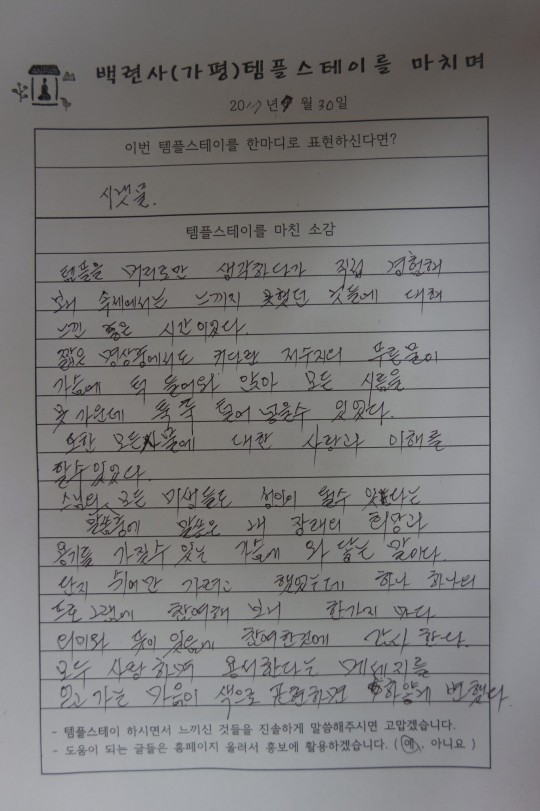 백련사(가평)템플스테이를 마치며
2017년 9월 30일
이번 템플스테이를 한마디로 표현하신다면?
시냇물.
템플스테이를 마친 소감
템플을 머리로만 생각하다가 직접 경험해
보니 속세에서는 느끼지 못했던 것들에 대해
느낀 좋은 시간이었다.
짧은 명상중에서도 커다란 저수지의 푸른물이
가슴에 턱 들어와 앉아 모든 시름을
못 가운데 푹푹 털어 넣을수 있었다.
또한 모든사물에 대한 사랑과 이해를
할수있었다.
스님의, 모든 미생들도 성인이 될수 있다는
말씀중에 말씀은 내 장래의 희망과
용기를 가질수 있는 가슴에 와 닿는 말이다.
단지 쉬어만 가려고 했었는데 하나 하나의
프로그램에 참여해 보니 한가지 마다
의미와 뜻이 있음에 참여한것에 감사 한다.
모두 사랑하며 용서한다는 메세지를
얻고 가는 마음이 색으로 표현하면 하얗게 변했다.
- 템플스테이 하시면서 느끼신 것들을 진솔하게 말씀해주시면 고맙겠습니다.
- 도움이 되는 글들은 홈페이지 올려서 홍보에 활용하겠습니다. ( 예, 아니요 )